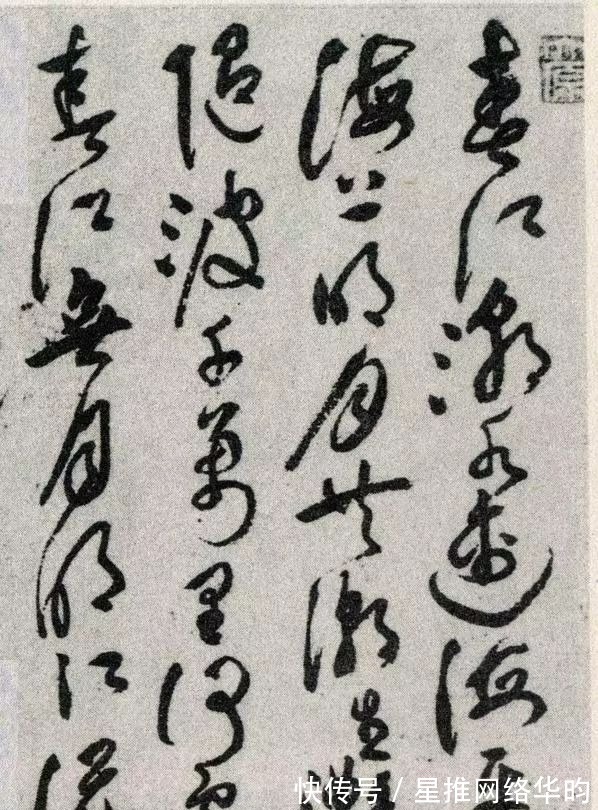 春江潮水連海
海上明月共潮生
隨波千萬里何
春江無月明江流
快传号 / 星推网络华昀